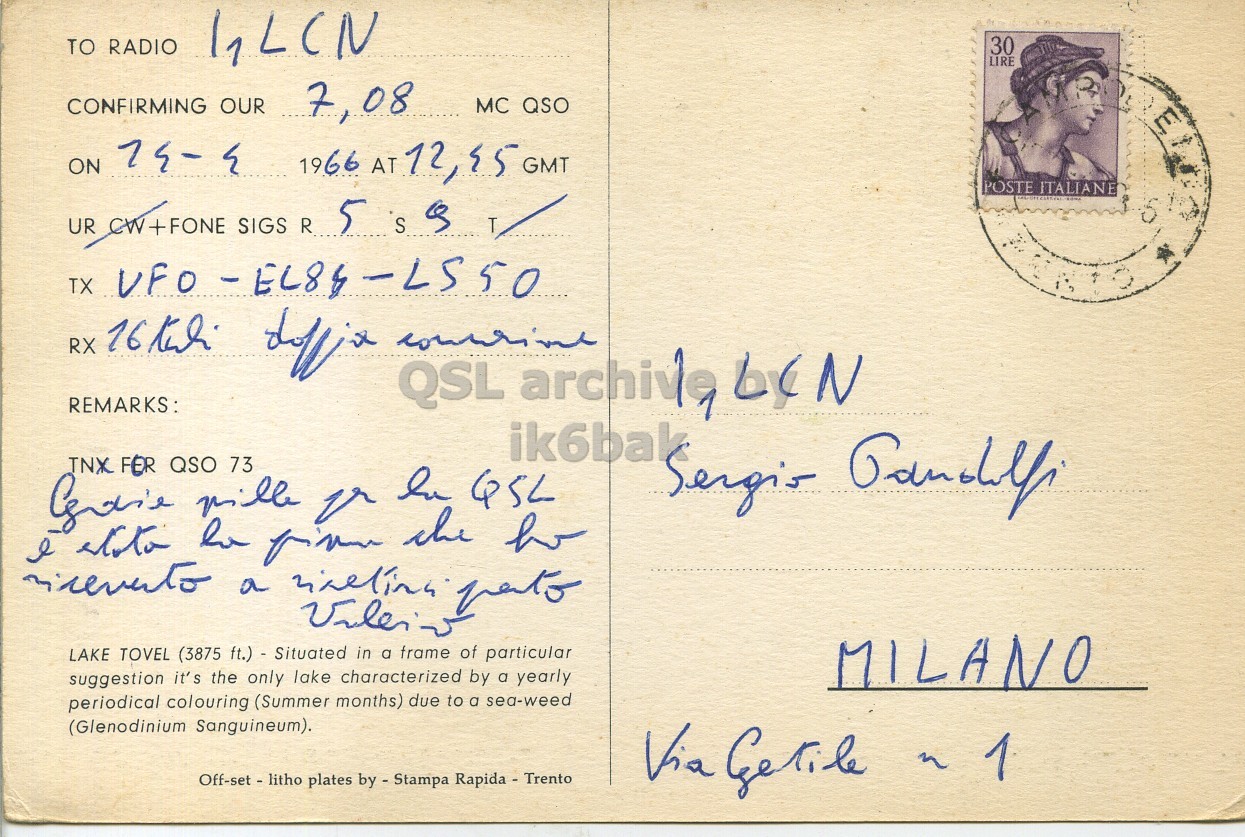 TO RADIO I1LCN
CONFIRMING OUR 7,08 MC QSO
ON 14-4 1966 AT 12,45 GMT
UR CW+FONE SIGS R 5 S 9 T /
TX VFO - EL84 - LS50
RX 16 doppia conversione
REMARKS:
TNX FER QSO 73
Grazie mille per la QSL
è stata la prima che ho
ricevuto a risentirci presto
Valerio
LAKE TOVEL (3875 ft.) - Situated in a frame of particular
suggestion it's the only lake characterized by a yearly
periodical colouring (Summer months) due to a sea-weed
(Glenodinium Sanguineum).
Off-set - litho plates by - Stampa Rapida - Trento
30
LIRE
POSTE ITALIANE
QSL archive by
ik6bak
I1LCN
Sergio Pandolfi
MILANO
Via Gentile n 1